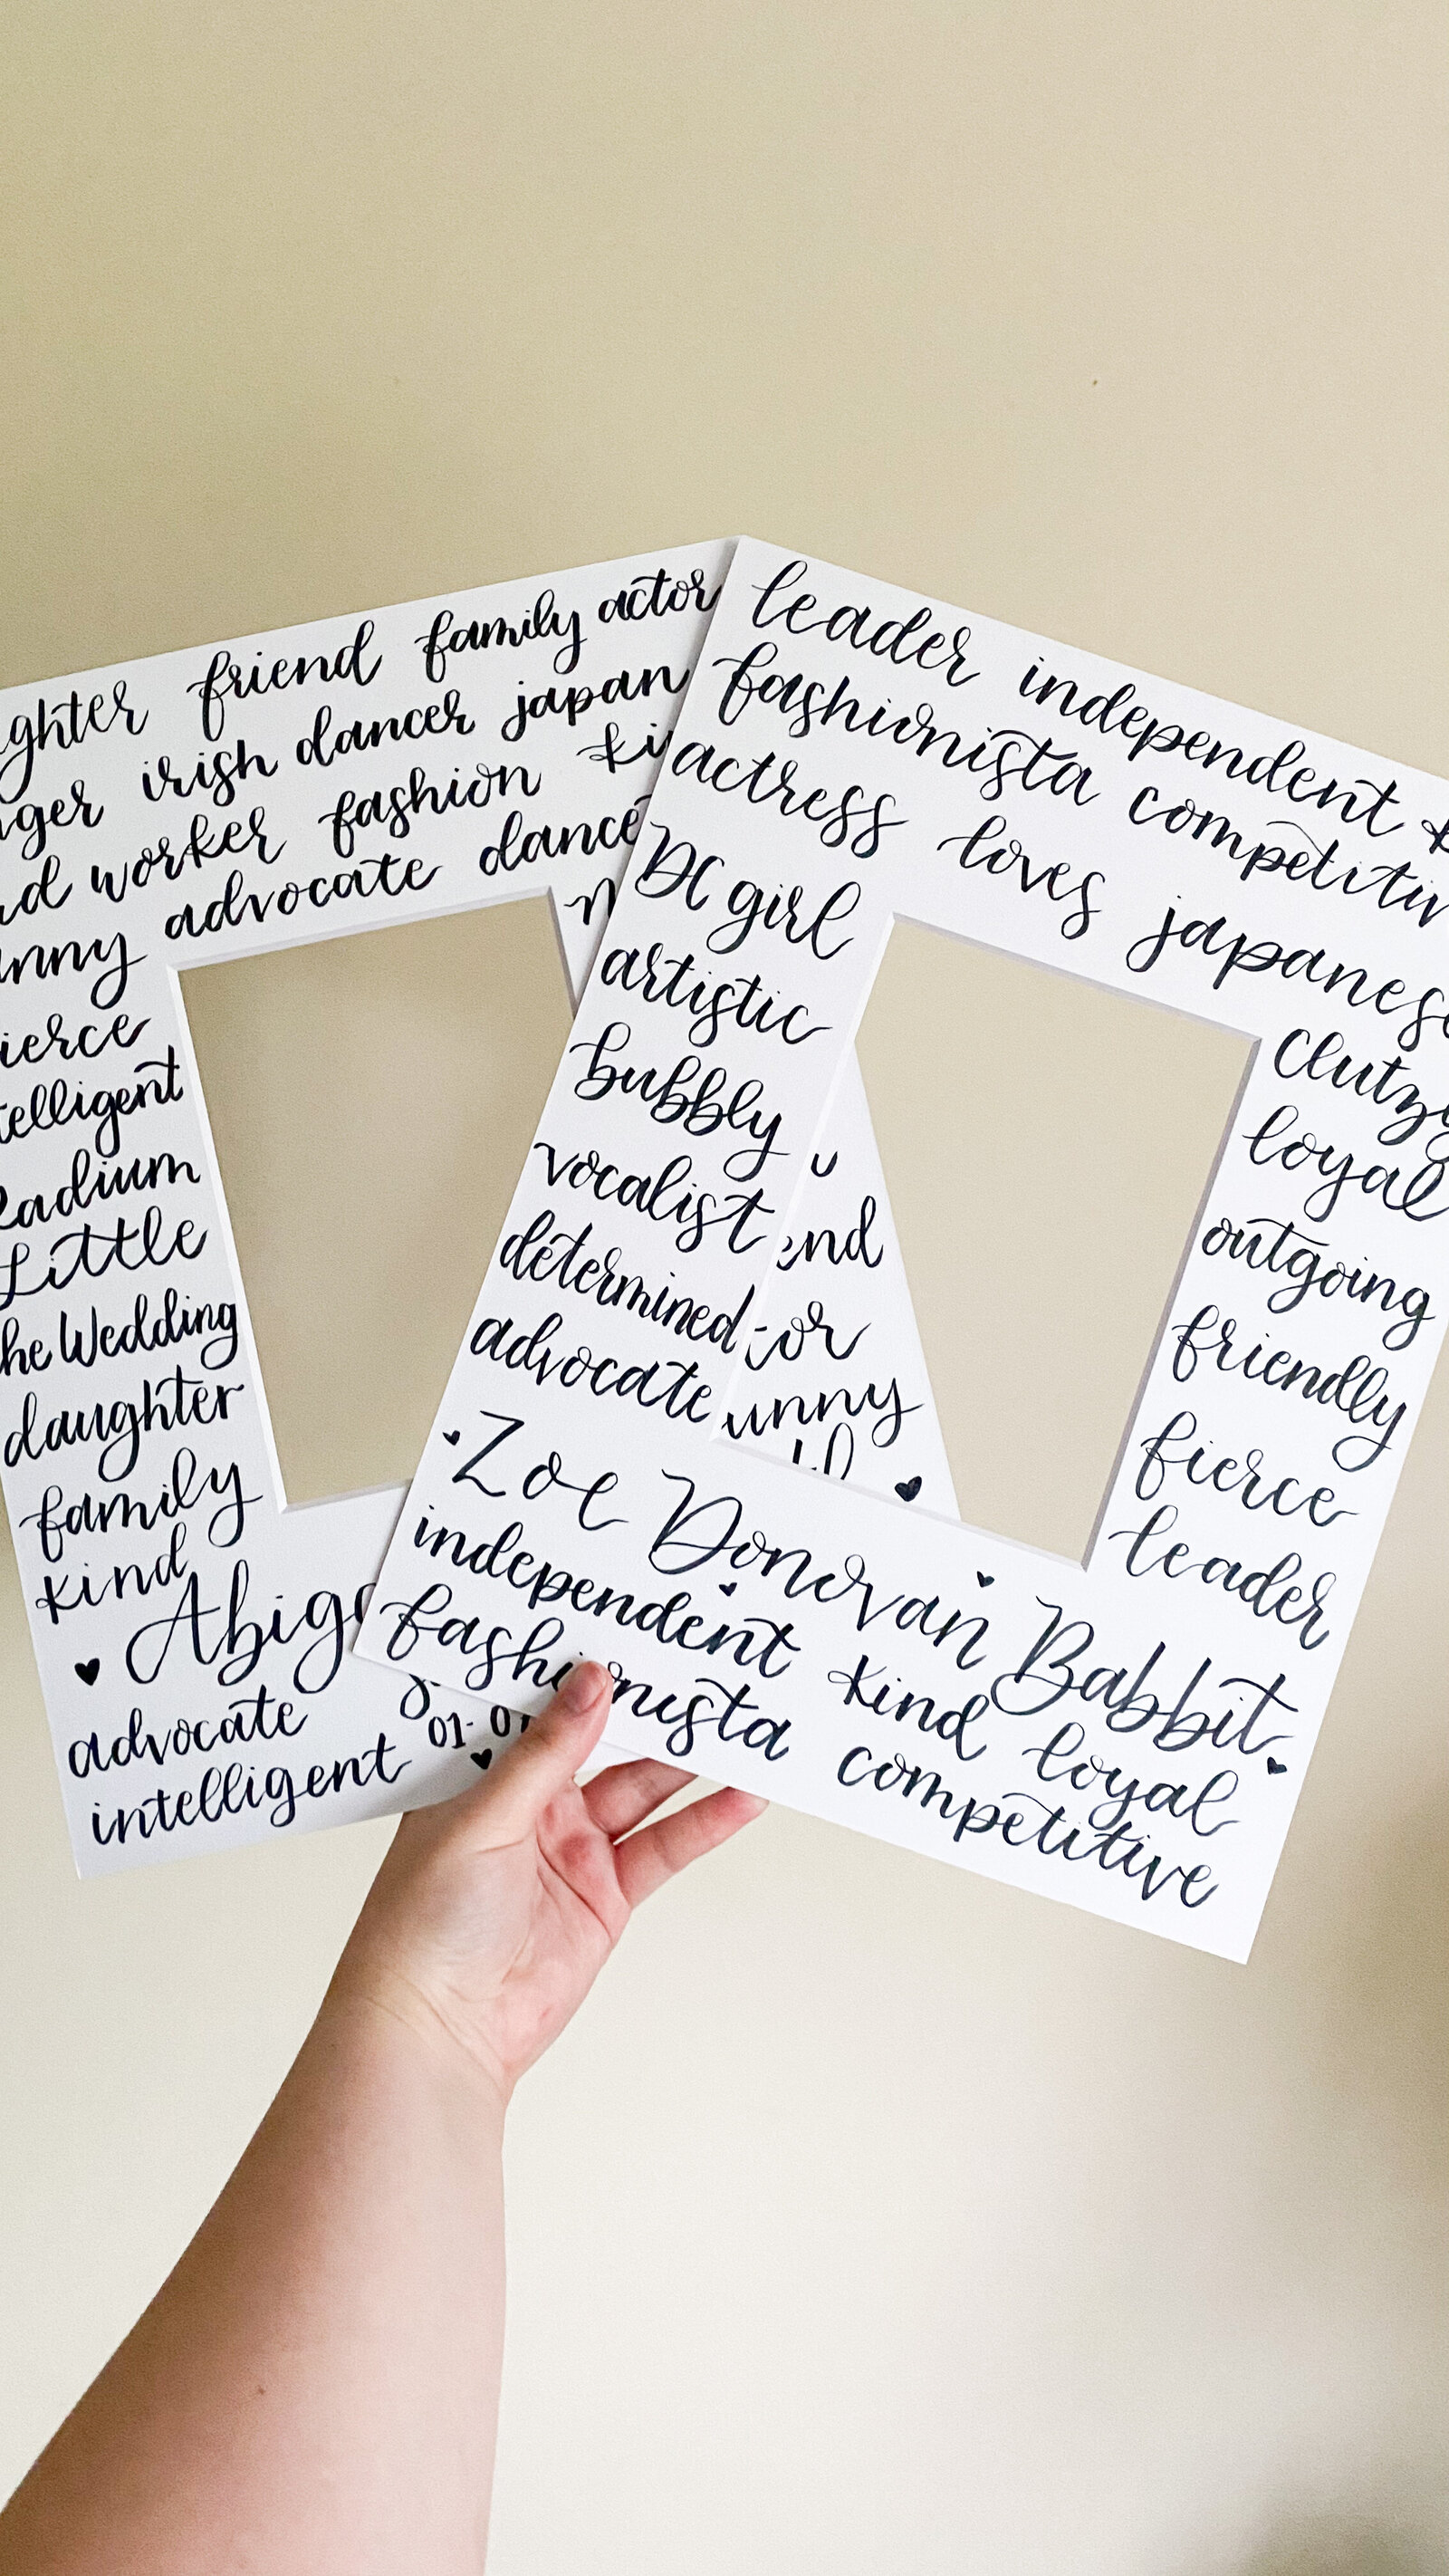 ghter friend family actor
ger irish dancer japan
d worker fashion ki
nny advocate dance
ierce
telligent
adium
Little
he Wedding
daughter
family
kind
Abiga
advocate
01-0
intelligent
leader independent
fashionista competitiv
actress loves japanes
DC girl
artistic
bubbly
vocalist
determined
advocate
clutzy
loyal
outgoing
friendly
fierce
leader
end
or
unny
Zoe Donovan Babbit
independent kind loyal
fashionista competitive